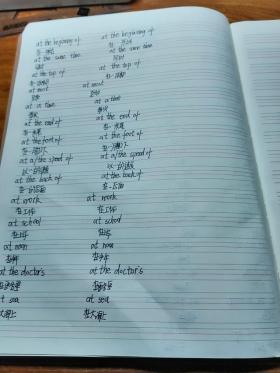 at the beginning of at the beginning of
在…开始 在…开始
at the same time at the same time
同时 同时
at the top of at the top of
在…顶部 在…顶部
at most at most
至多 至多
at a time at a time
一次 一次
at the end of at the end of
在…末尾 在…末尾
at the foot of at the foot of
在…脚下 在…脚下
at a/the speed of at a/the speed of
以…的速度 以…的速度
at the back of at the back of
在…后面 在…后面
at work at work
在工作 在工作
at school at school
在上学 在上学
at noon at noon
在中午 在中午
at the doctor's at the doctor's
at sea at sea
在大海上 在大海上